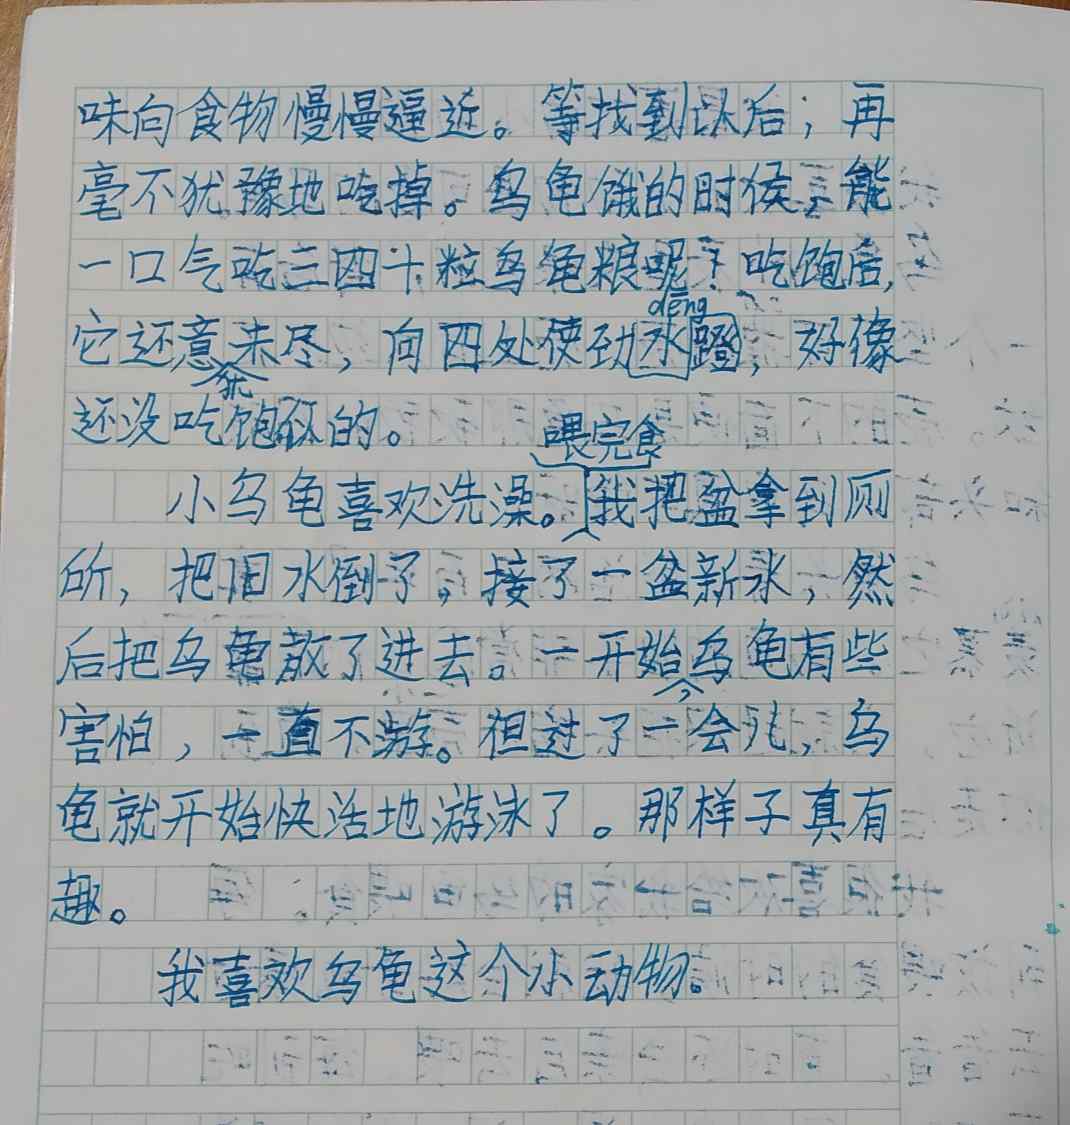 味向食物慢慢逼近。等找到以后，再
毫不犹豫地吃掉。乌龟饿的时侯，能
一口气吃三四十粒乌龟粮呢？吃饱后，
dēng
它还意犹未尽，向四处使劲水蹬，好像
还没吃饱似的。
喂完食
小乌龟喜欢洗澡。我把盆拿到厕
所，把旧水倒了，接了一盆新水，然
后把乌龟放了进去。一开始，乌龟有些
害怕，一直不游。但过了一会儿，乌
龟就开始快活地游泳了。那样子真有
趣。
我喜欢乌龟这个小动物。